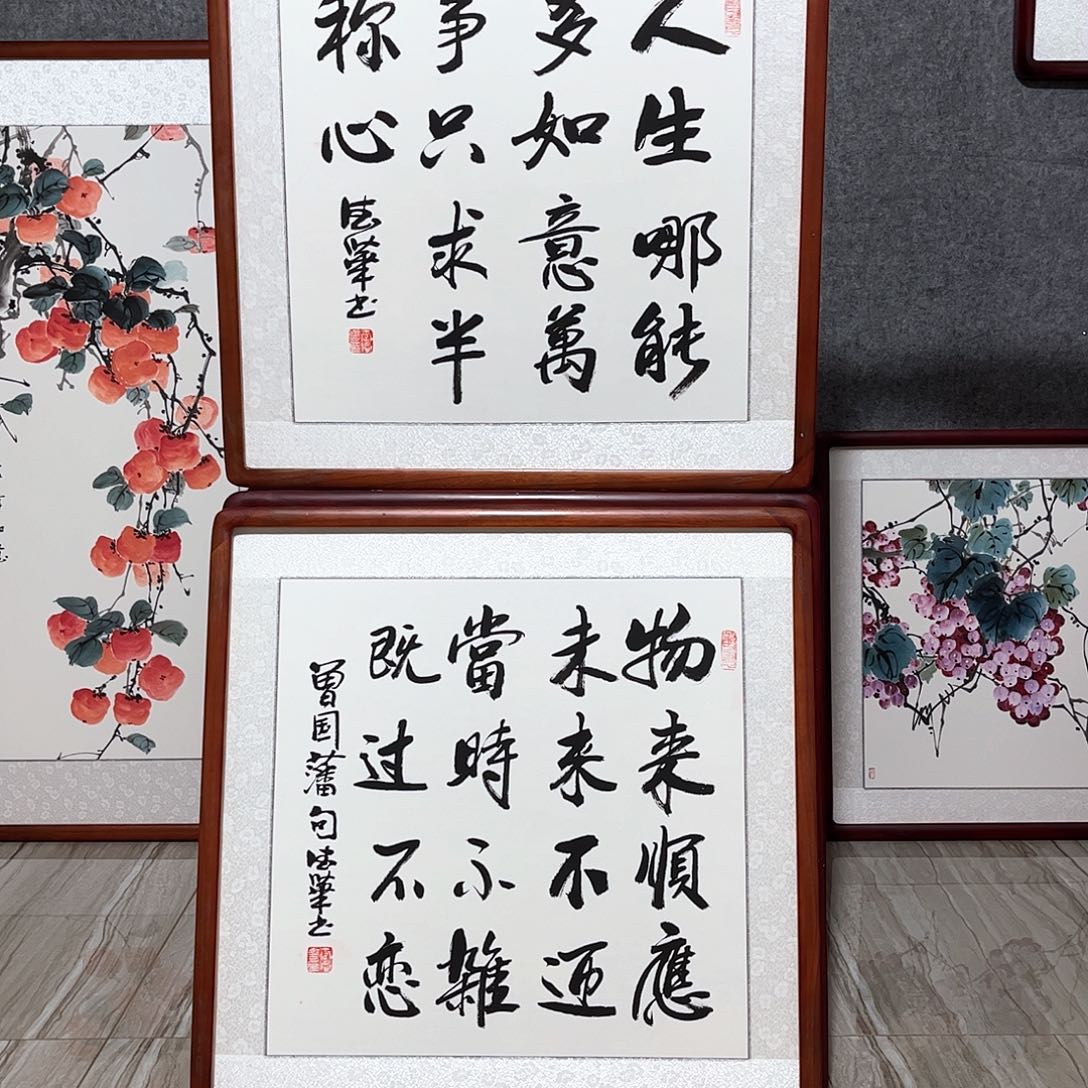 人生哪能
多如意萬
事只求半
称心
德華书
物来順應
未来不迎
當時不雜
既过不恋
曾国藩句德華书